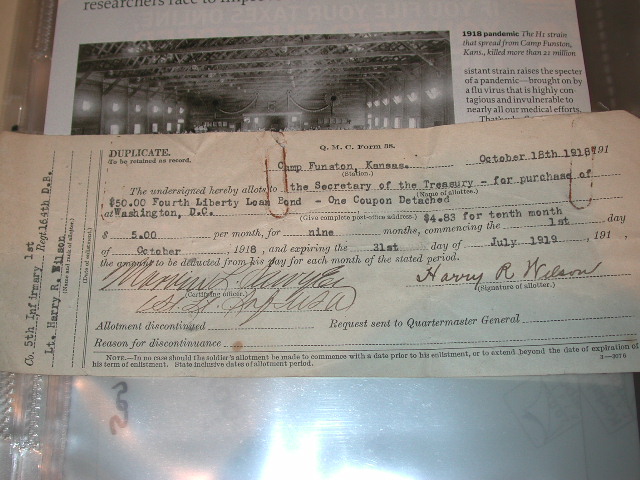 researchers race to
YOU FILE YOUR TAXES ONLINE
1918 pandemic The H1 strain
that spread from Camp Funston,
Kans., killed more than 21 million
sistant strain raises the specter
of a pandemic—brought on by
a flu virus that is highly con-
tagious and invulnerable to
nearly all our medical efforts.
DUPLICATE.
(To be retained as record.
Q. M. C. Form 38.
Camp Funston, Kansas.
(Station.)
October 18th 1918 191
The undersigned hereby allots to the Secretary of the Treasury - for purchase of
(Name of allottee.)
$50.00 Fourth Liberty Loan Bond - One Coupon Detached
at Washington, D.C.
(Give complete post-office address.) $4.83 for tenth month
$ 5.00 per month, for nine months, commencing the 1st day
of October, 1918, and expiring the 31st day of July 1919, 191,
the amount to be deducted from his pay for each month of the stated period.
Harry R Wilson
(Certifying officer.)
(Signature of allotter.)
Allotment discontinued
Request sent to Quartermaster General
Reason for discontinuance
NOTE.—In no case should the soldier's allotment be made to commence with a date prior to his enlistment, or to extend beyond the date of expiration of
his term of enlistment. State inclusive dates of allotment period.
3—2076
Co. 5th Infirmary 1st Reg. 164th D.B.
Lt. Harry R. Wilson
(Name and rank of allotter.)
(Date of enlistment.)